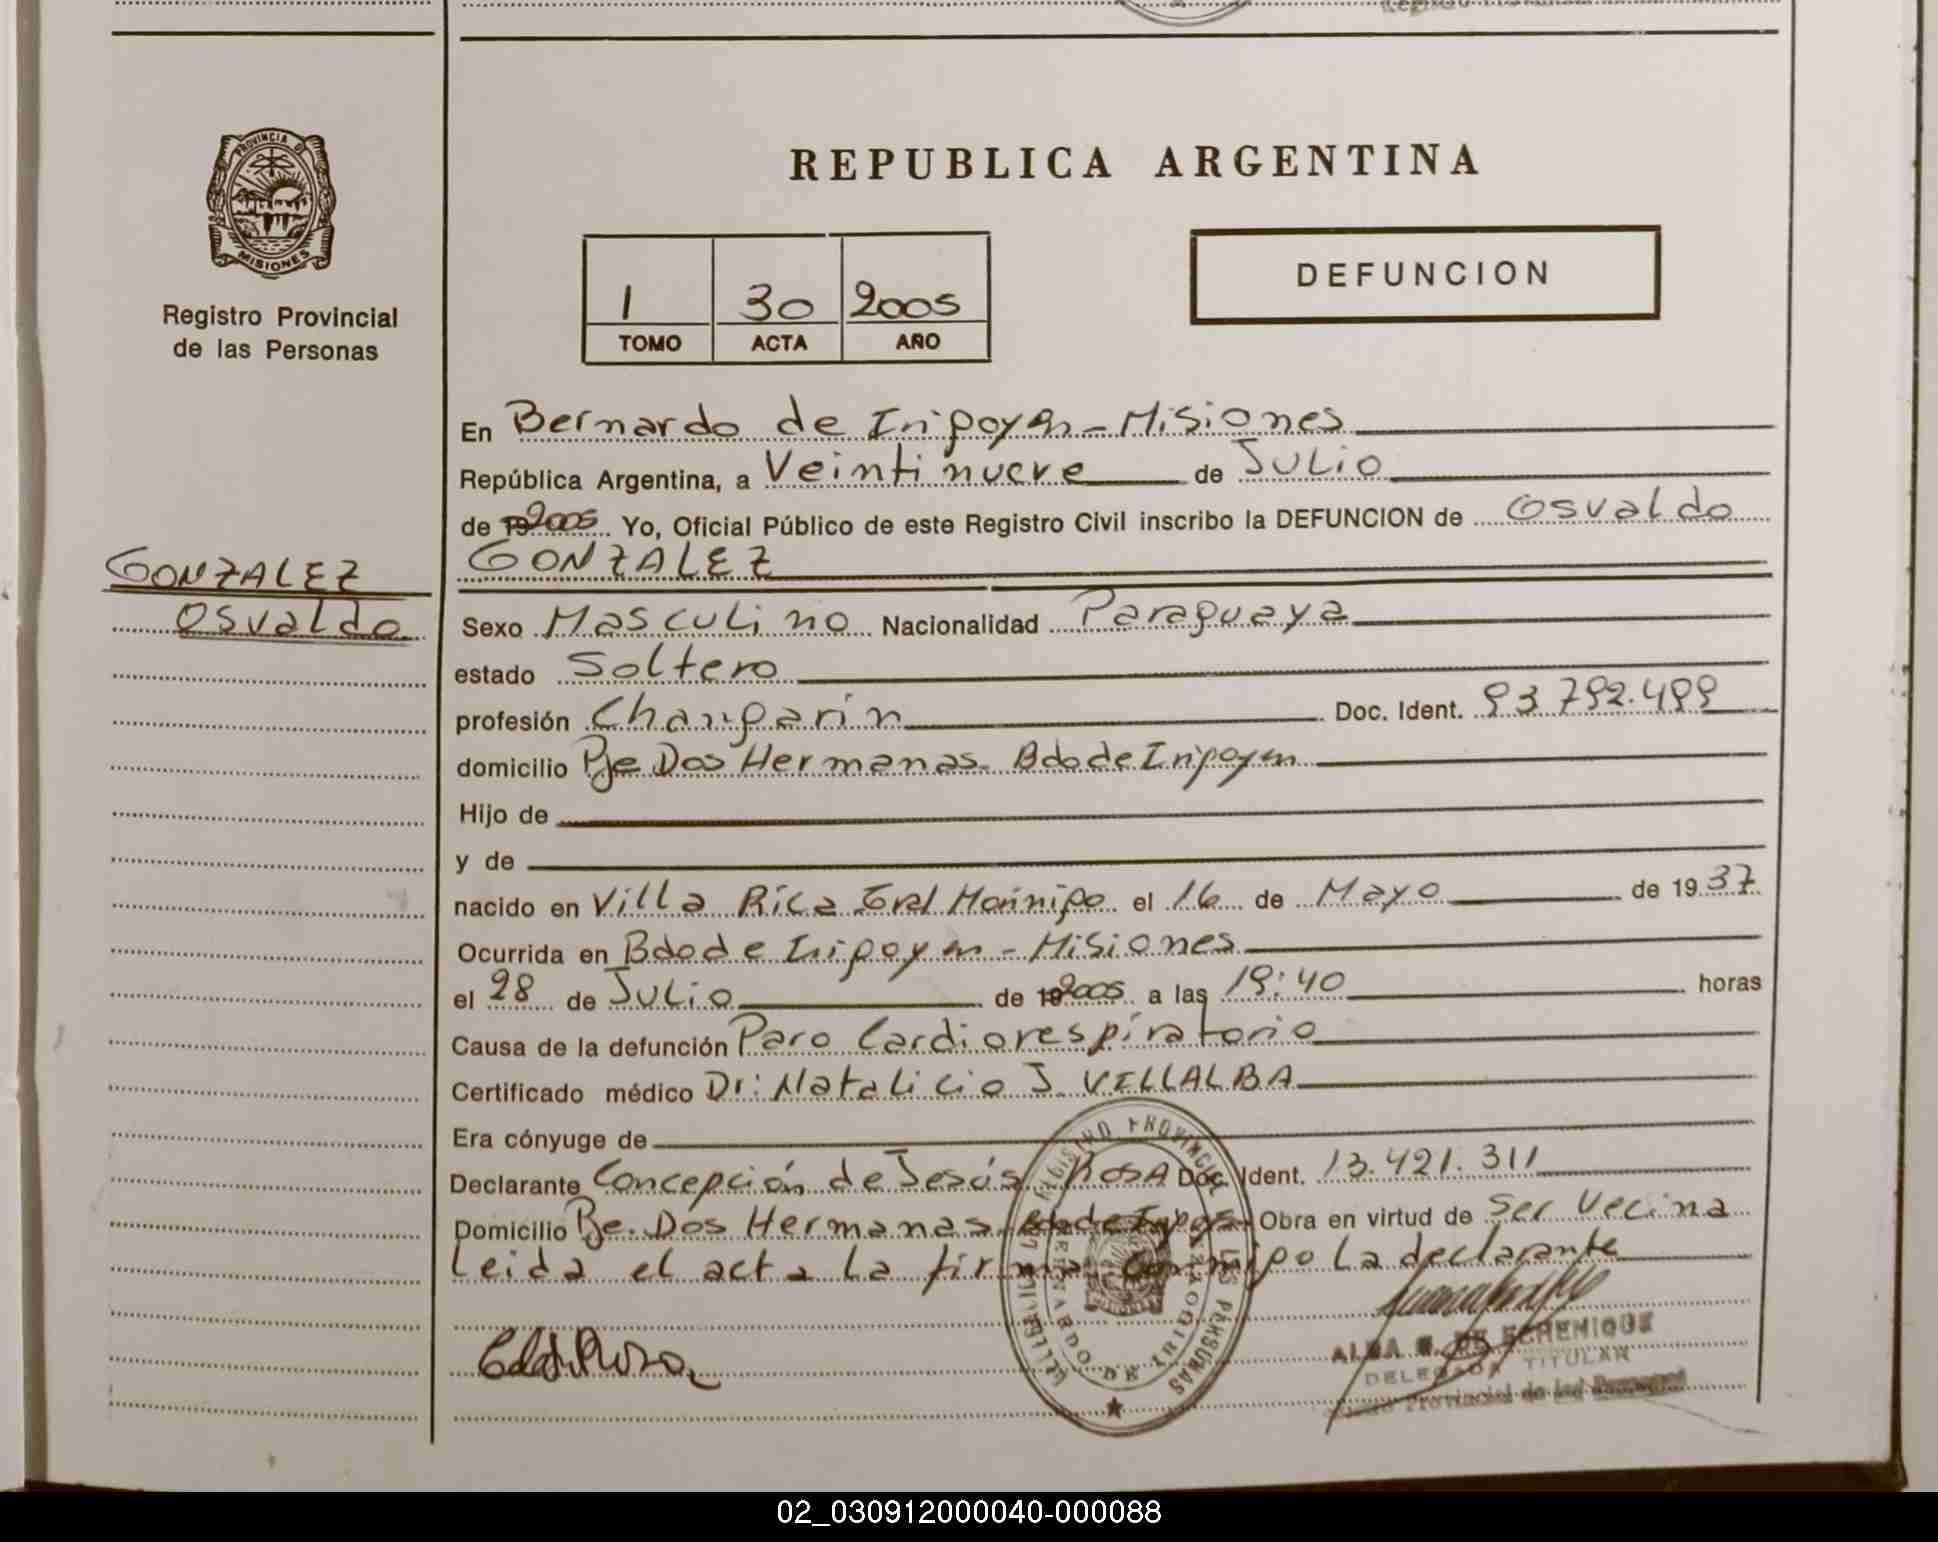 PROVINCIA D
MISIONES
Registro Provincial
de las Personas
REPUBLICA ARGENTINA
1 30 2005
TOMO ACTA AÑO
DEFUNCION
En Bernardo de Irigoyen - Misiones
República Argentina, a Veintinueve de Julio
de 2005 Yo, Oficial Público de este Registro Civil inscribo la DEFUNCION de Osvaldo
GONZALEZ
GONZALEZ
Osvaldo
Sexo Masculino Nacionalidad Paraguaya
estado Soltero
profesión Changarín Doc. Ident. 93.792.499
domicilio Pje Dos Hermanas Bdo de Irigoyen
Hijo de
y de
nacido en Villa Rica Gral el 16 de Mayo de 1937
Ocurrida en Bdo de Irigoyen - Misiones
el 28 de Julio de 2005 a las 19:40 horas
Causa de la defunción Paro Cardiorespiratorio
Certificado médico Dr: Natalicio J VILLALBA
Era cónyuge de
Declarante Concepción de Jesús ROSA Doc. Ident. 13.421.311
Domicilio Pje. Dos Hermanas Bdo de Irigoy Obra en virtud de ser vecina
Leida el acta la firma conmigo la declarante
REGISTRO PROVINCIAL DE LAS PERSONAS
BERNARDO DE IRIGOYEN
ALBA DE ECHENIQUE
DELEGADA TITULAR
Provincial de las Personas
02_030912000040-000088